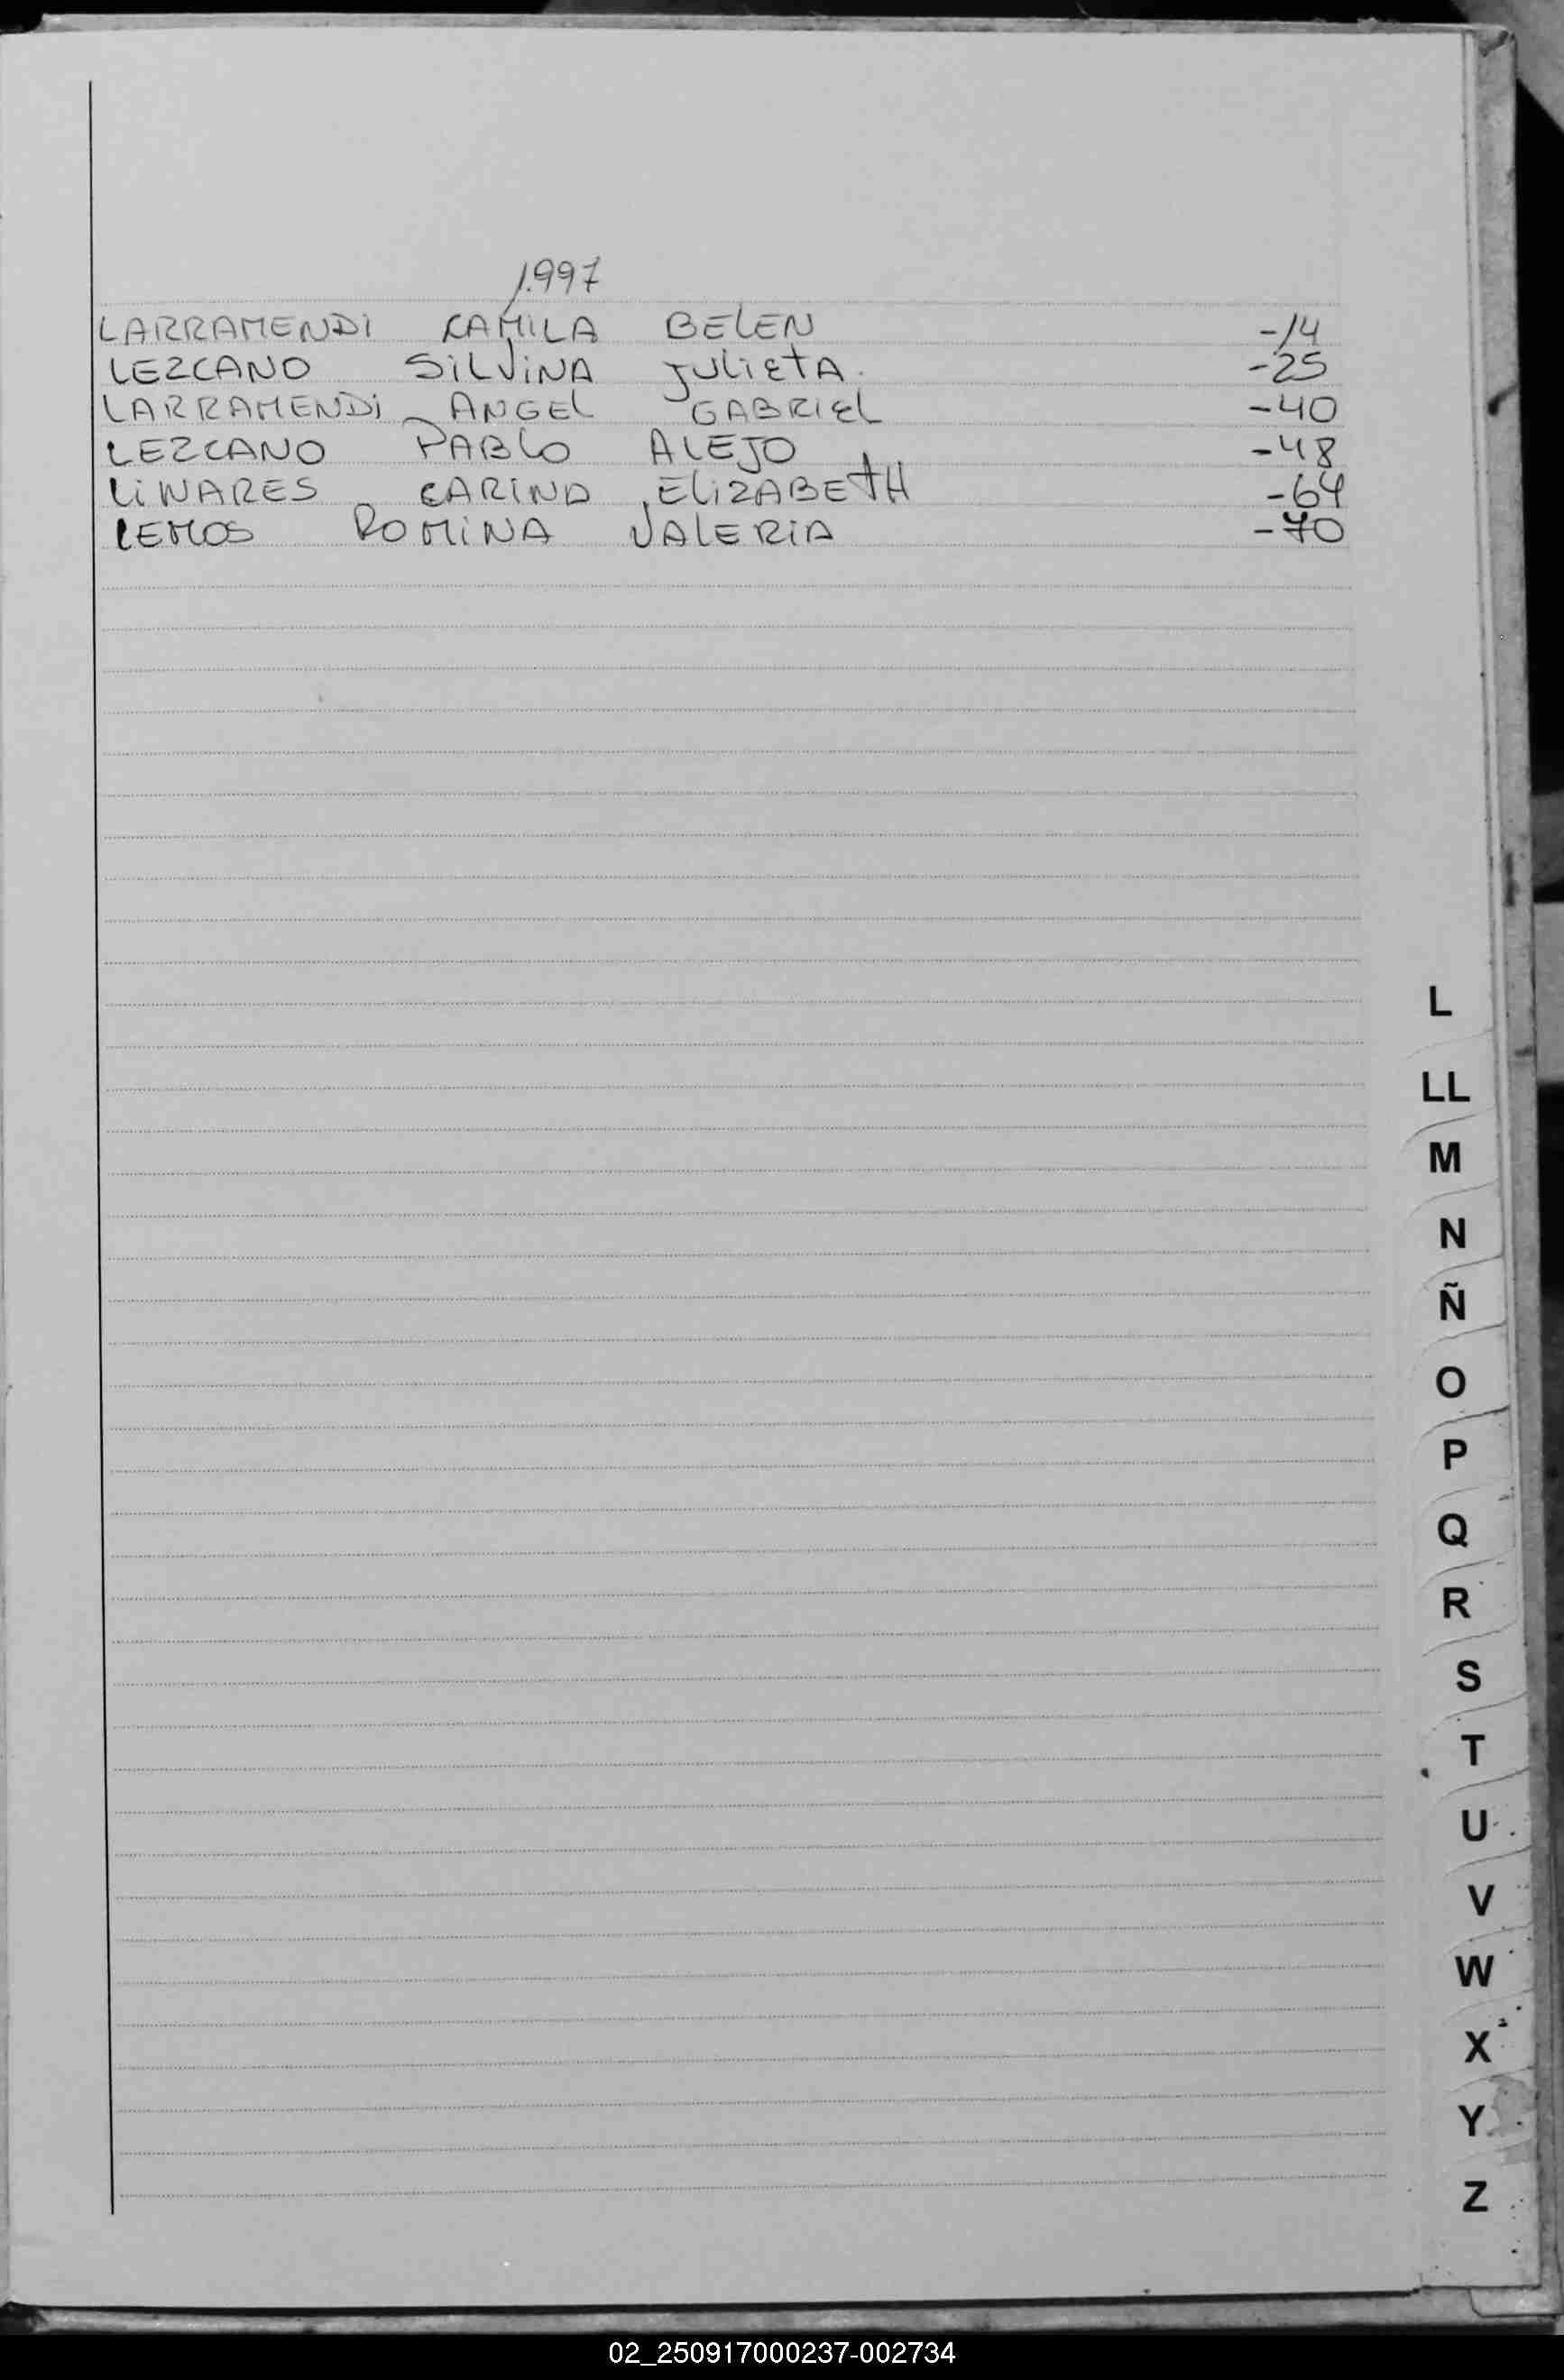 1.997
LARRAMENDI CAMILA BELEN -14
LEZCANO SILVINA JULIETA. -25
LARRAMENDI ANGEL GABRIEL -40
LEZCANO PABLO ALEJO -48
LINARES CARINA ELIZABETH -64
LEMOS ROMINA VALERIA -70
L
LL
M
N
Ñ
O
P
Q
R
S
T
U
V
W
X
Y
Z
02_250917000237-002734